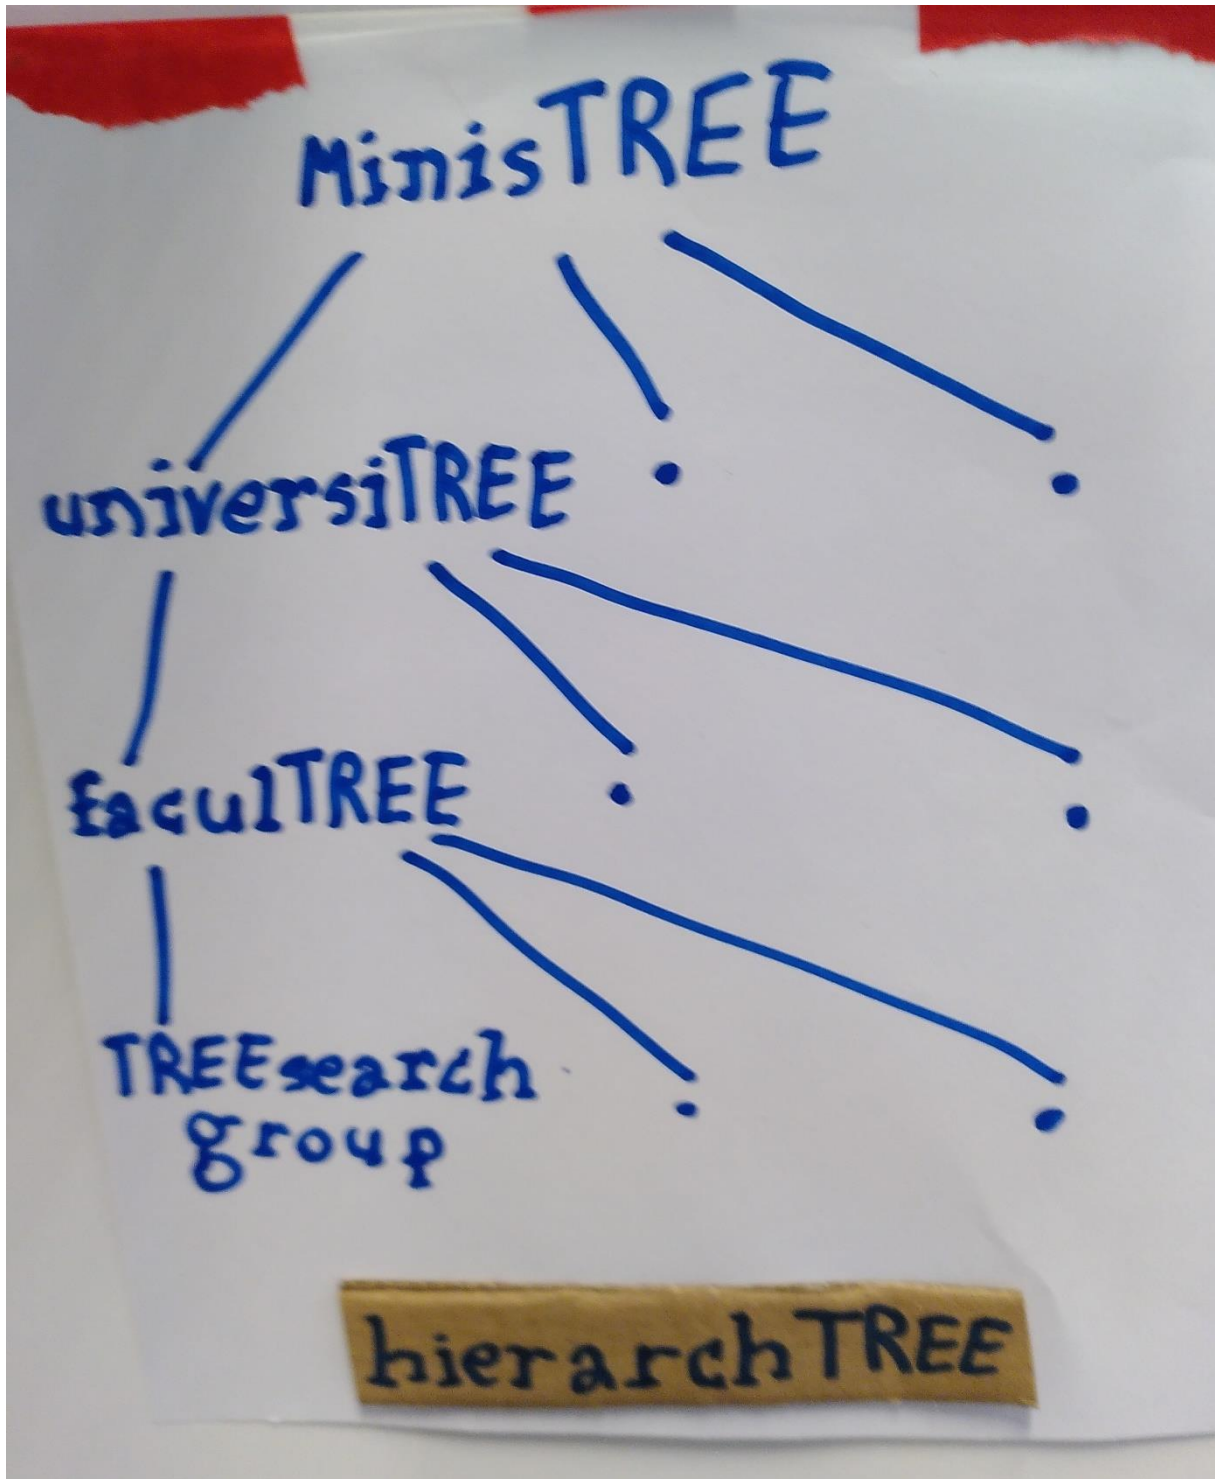 MinisTREE
universiTREE
faculTREE
TREEsearch
group
hierarchTREE